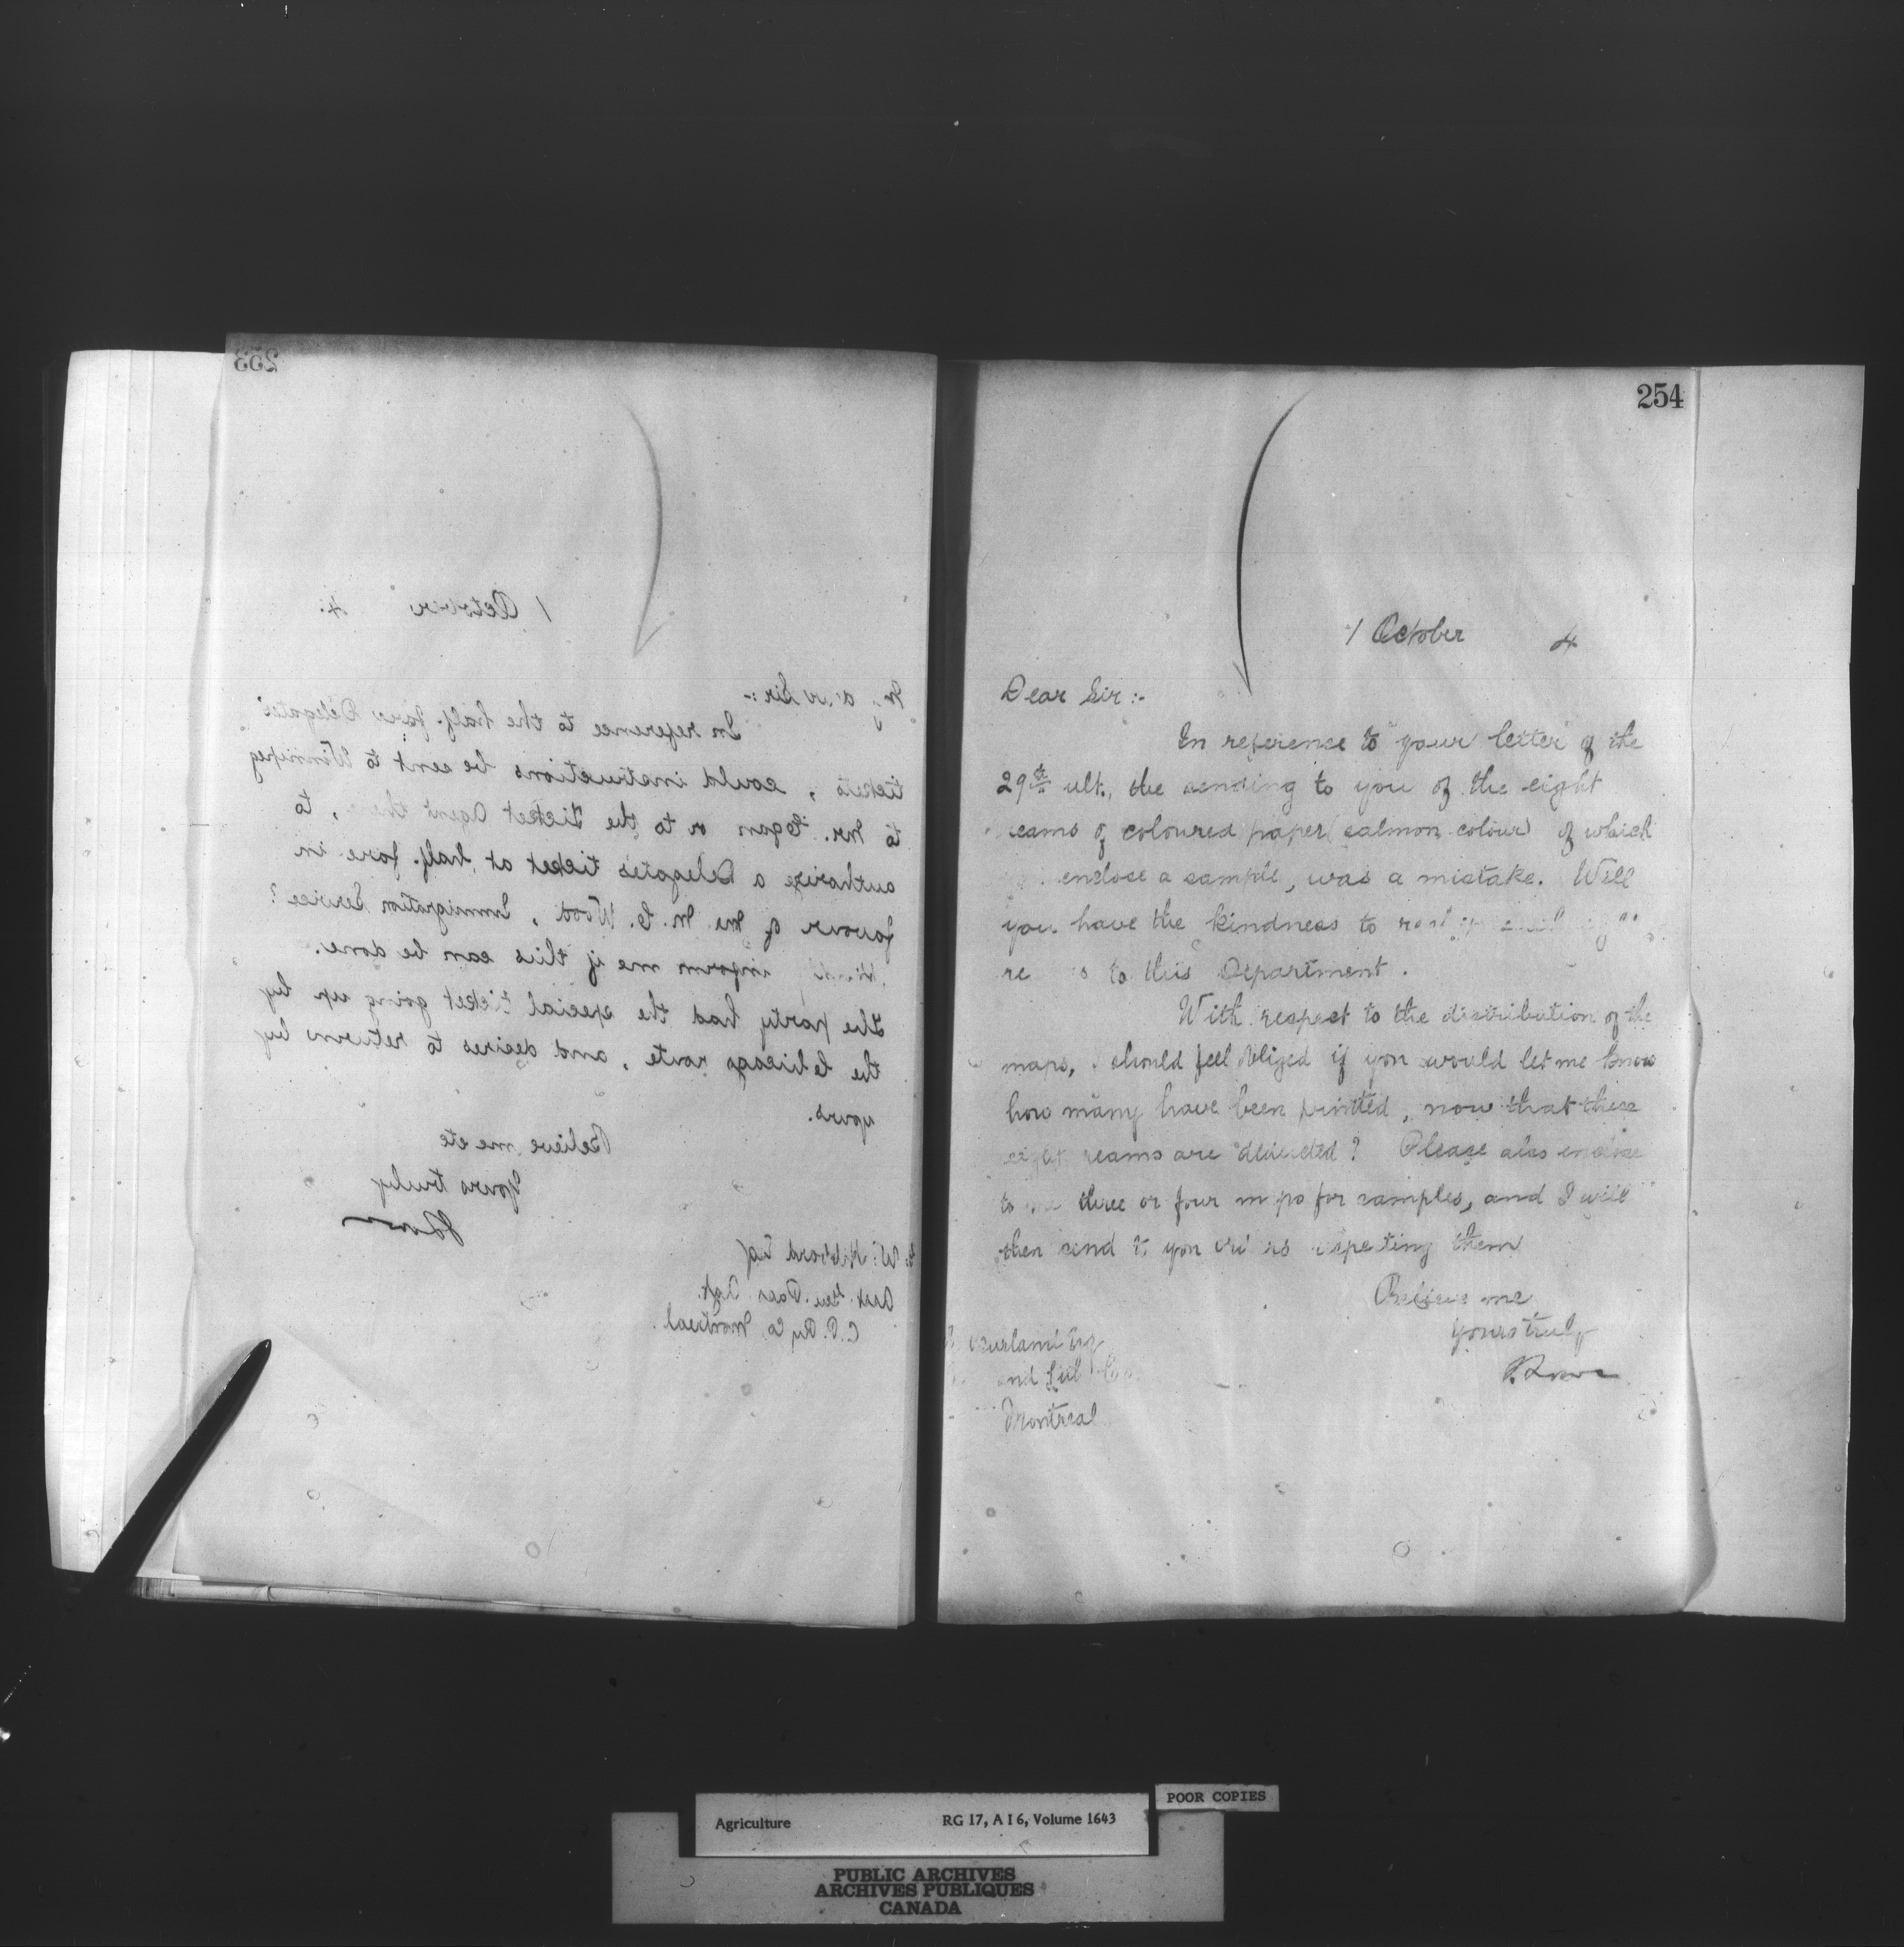 253
1 October 4.
My dear Sir:-
In reference to the half-fare Delegates'
tickets, could instructions be sent to Winnipeg
to Mr. Egan or to the Ticket Agent there, to
authorize a Delegates ticket at half-fare in
favour of Mr M. C. Wood, Immigration Service?
inform me if this can be done.
The party had the special ticket going up by
the Chicago route, and desires to return by
yours.
Believe me etc
Yours truly
W. Hibbard Esq
Asst. Gen. Pass Agt.
C.P. Ry Co Montreal.
254
1 October 4
Dear Sir:-
In reference to your letter of the
29th ult., the sending to you of the eight
reams of coloured paper (salmon colour) of which
enclose a sample, was a mistake. Will
you have the kindness to
to this Department.
With respect to the distribution of the
maps, should feel obliged if you would let me know
how many have been printed, now that these
eight reams are deducted? Please also enclose
to me three or four maps for samples, and I will
then send to you respecting them
Believe me
Yours truly
Montreal
Agriculture RG 17, A I 6, Volume 1643
POOR COPIES
PUBLIC ARCHIVES
ARCHIVES PUBLIQUES
CANADA